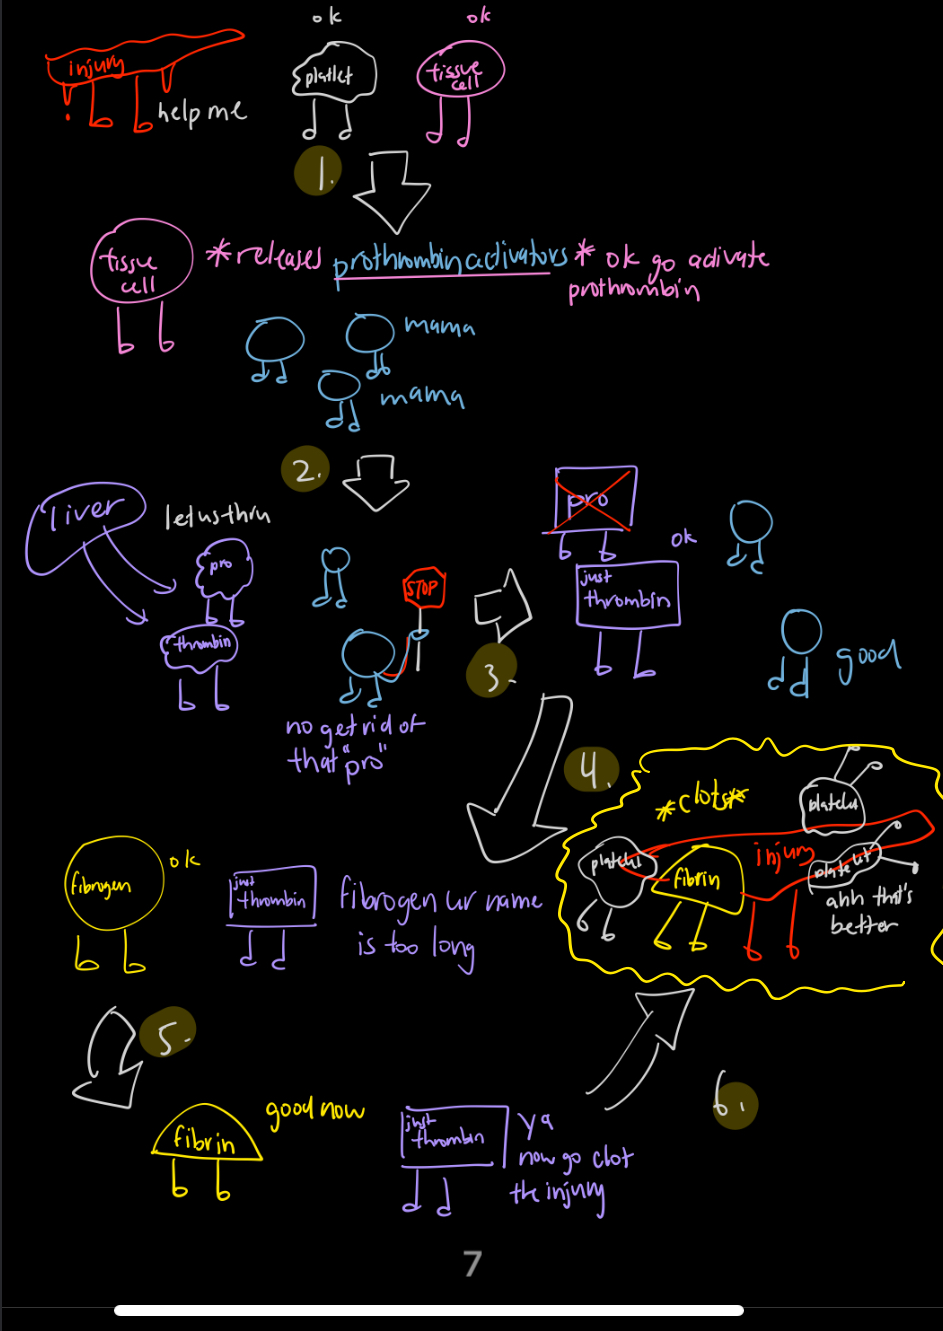 ok
ok
injury
platlet
tissue
cell
help me
1.
tissue
cell
*releases prothrombin activators * ok go activate
prothrombin
mama
mama
2.
liver
let us thru
pro
thrombin
STOP
no get rid of
that "pro"
3.
pro
ok
just
thrombin
good
4.
*clots*
platelet
platelet
fibrin
injury
platelet
ahh that's
better
fibrogen
ok
just
thrombin
fibrogen ur name
is too long
5.
fibrin
good now
just
thrombin
ya
now go clot
the injury
6.
7